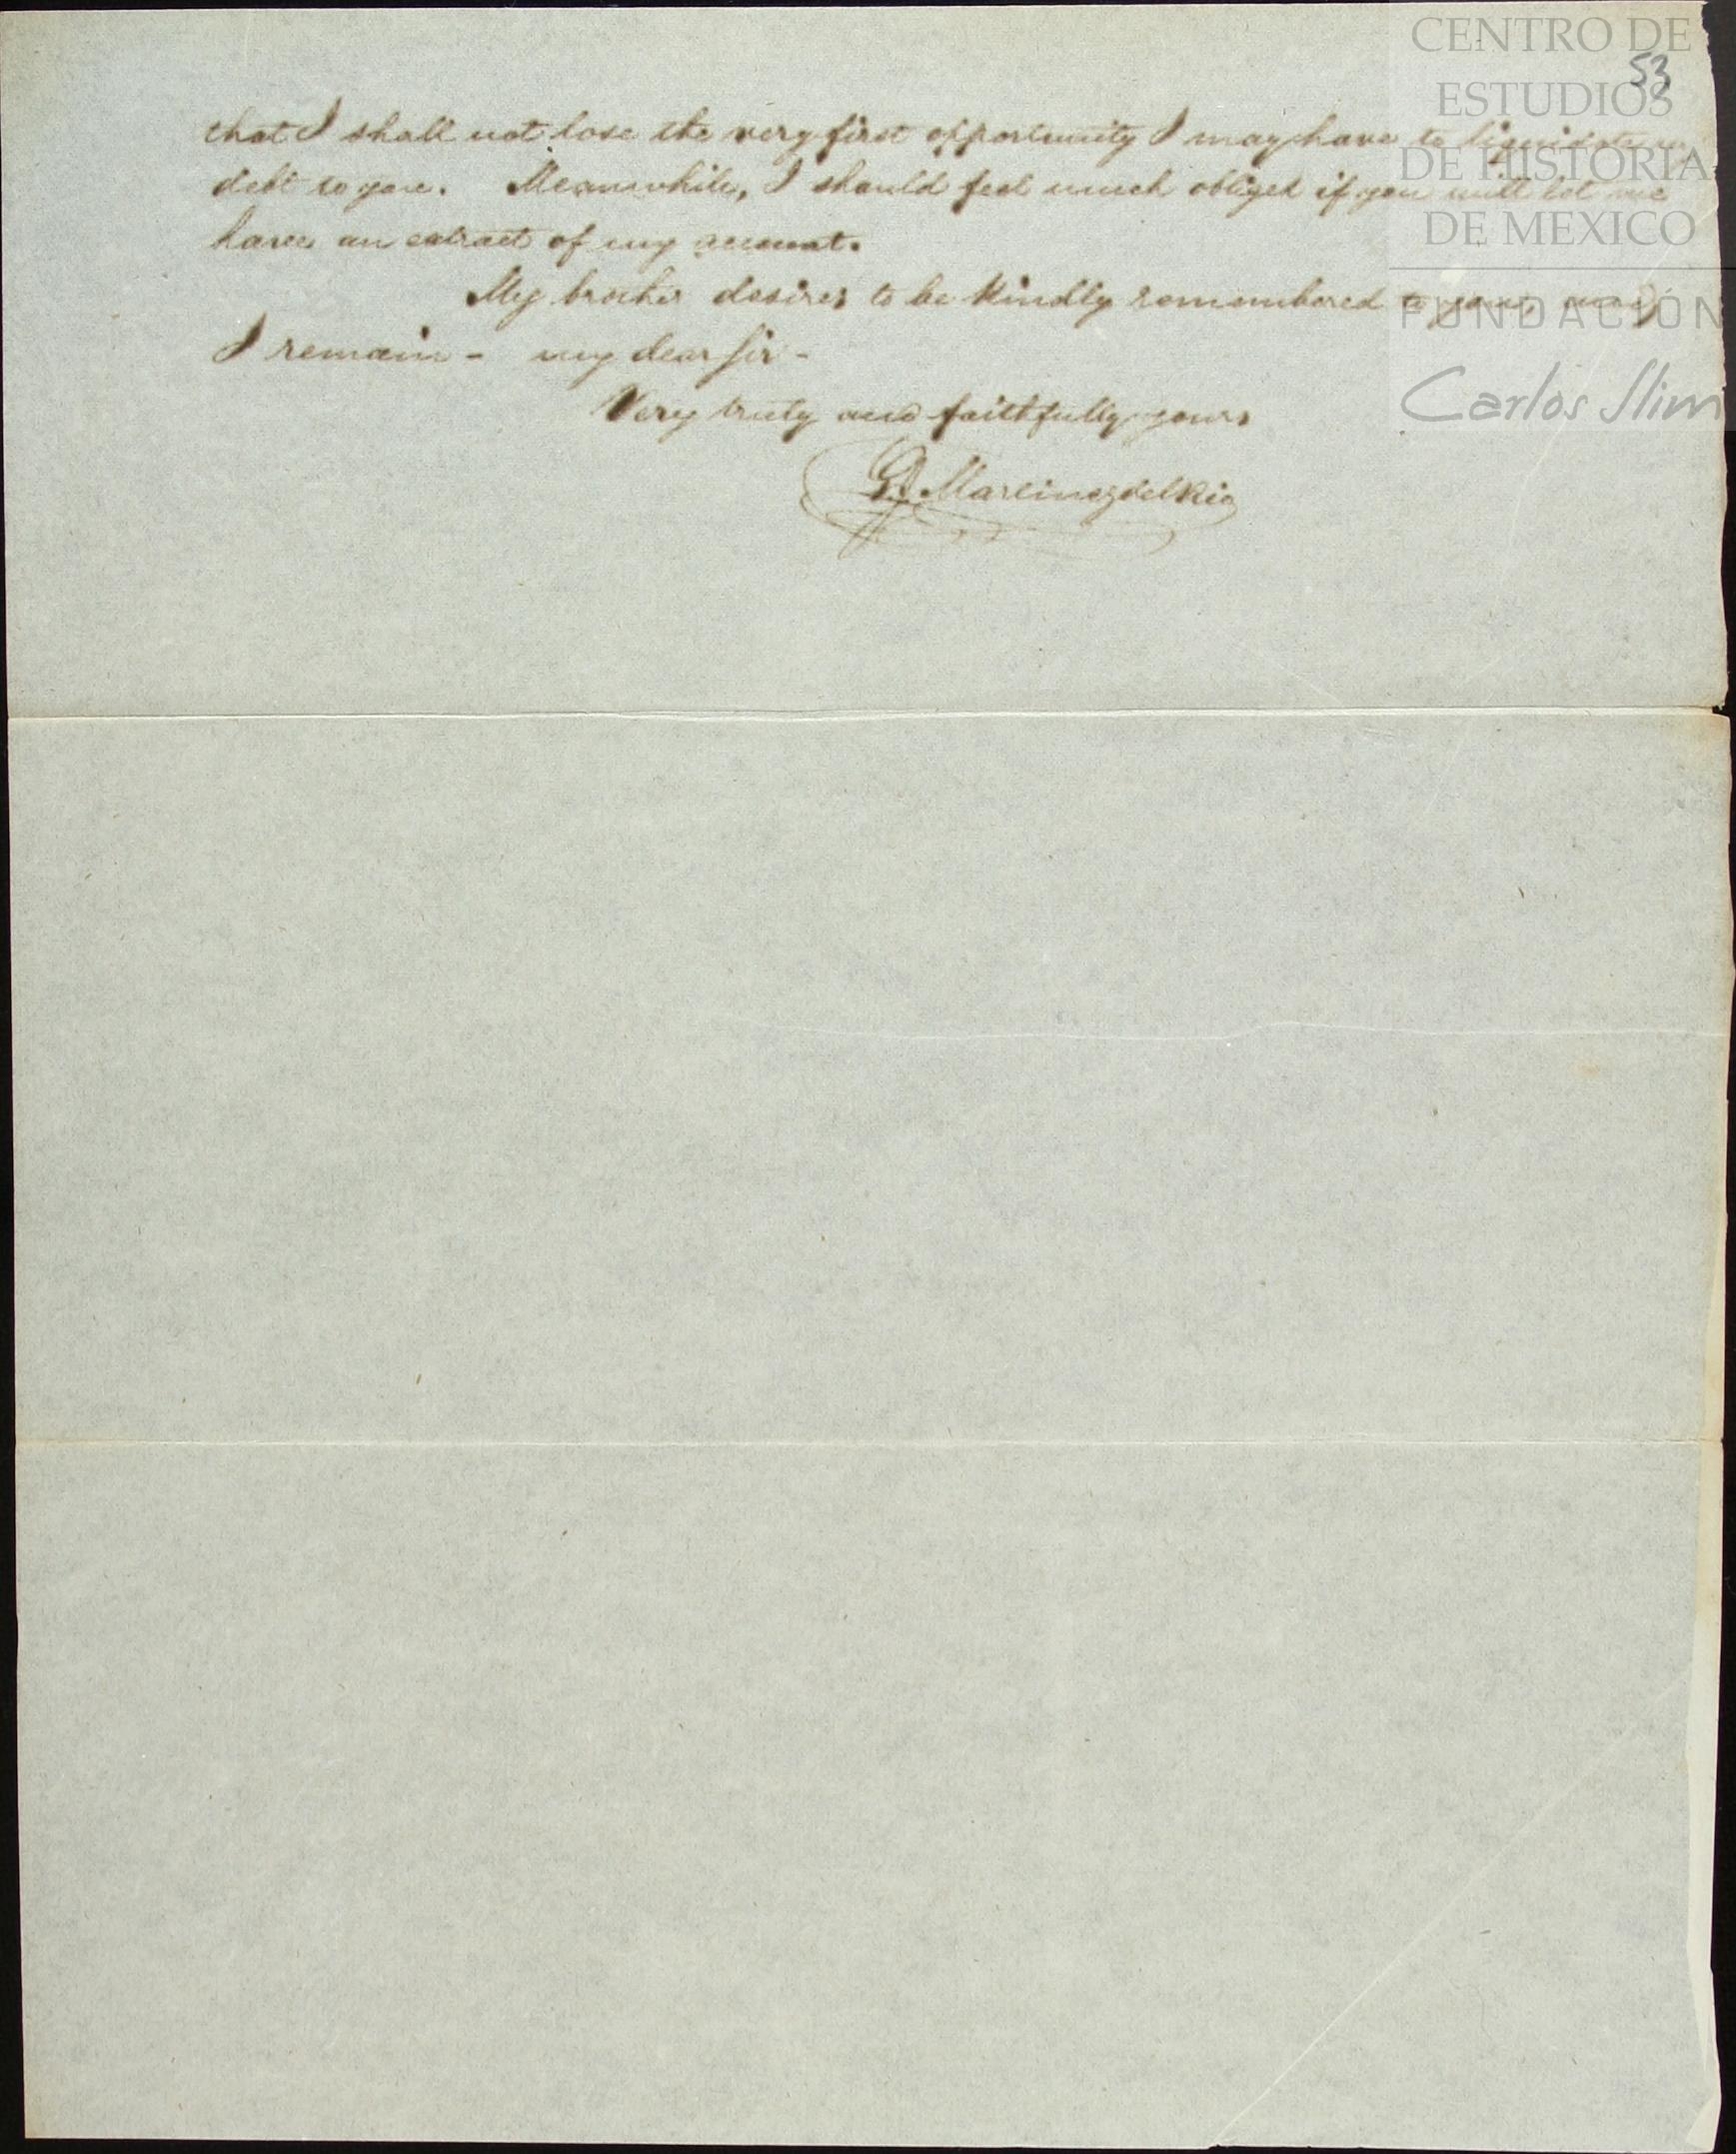 CENTRO DE
ESTUDIOS
DE HISTORIA
DE MEXICO
FUNDACIÓN
Carlos Slim
53
that I shall not lose the very first opportunity I may have to liquidate my
debt to you. Meanwhile, I should feel much obliged if you will let me
have an extract of my account.
My brother desires to be kindly remembered to you, and
I remain - my dear Sir -
Very truly and faithfully yours
Martinez del Rio